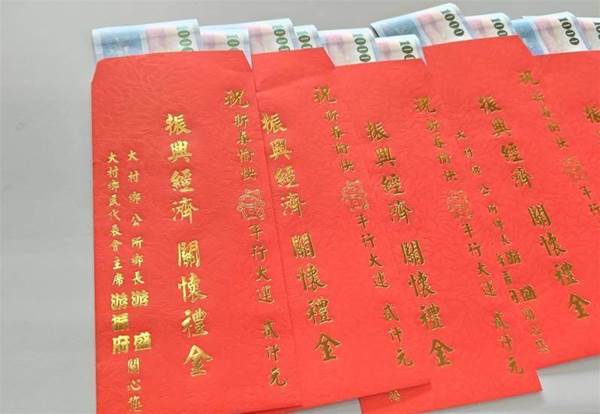 1000
1000
1000
1000
1000
1000
1000
祝 新春愉快 年行大運 貳仟元
振興經濟 關懷禮金
大村鄉公所鄉長 游盛 關心您
大村鄉民代表會主席 游振府
祝 新春愉快 年行大運 貳仟元
振興經濟 關懷禮金
祝 新春愉快 年行大運 貳仟元
振興經濟 關懷禮金
祝 新春愉快 年行大運
振興經濟 關懷禮金
大村鄉公所鄉長
振興